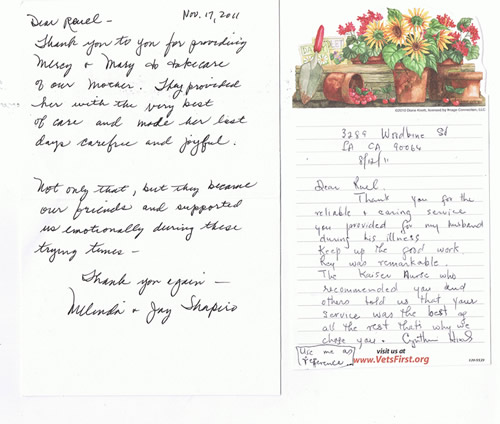 Dear Rael -
Nov. 17, 2011
Thank you to you for providing
Mercy & Mary to take care
of our mother. They provided
her with the very best
of care and made her last
days carefree and joyful.
Not only that, but they became
our friends and supported
us emotionally during these
trying times -
Thank you again -
Melinda & Jay Shapiro
©2010 Diane Knott, licensed by Image Connection, LLC
3289 Woodbine St
LA CA 90064
8/12/11
Dear Rael.
Thank you for the
reliable & caring service
you provided for my husband
during his illness
Keep up the good work.
Rey was remarkable.
The Kaiser Nurse who
recommended you and
others told us that your
service was the best of
all the rest that's why we
chose you. Cynthia
Use me as
reference
visit us at
www.VetsFirst.org